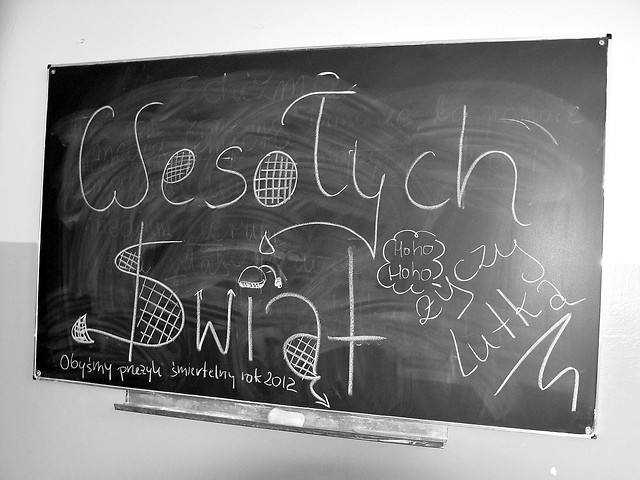 Wesołych
Świąt
Hoho
Hoho
życzy
Lutka
Obyśmy przeżyli śmiertelny rok 2012